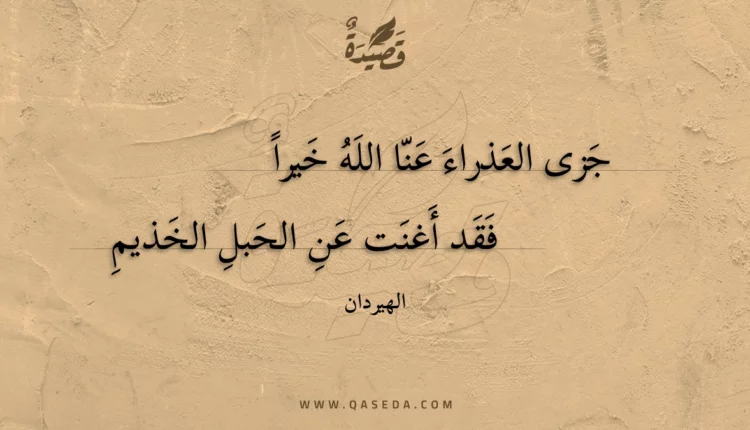 قَصِيدَةٌ
جَزى العَذراءَ عَنّا اللَهُ خَيراً
فَقَد أَغنَت عَنِ الحَبلِ الخَذيمِ
الهيردان
WWW.QASEDA.COM